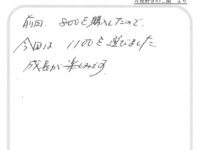 前回、800を購入したので、
今回は1100を選びました
成長が楽しみです